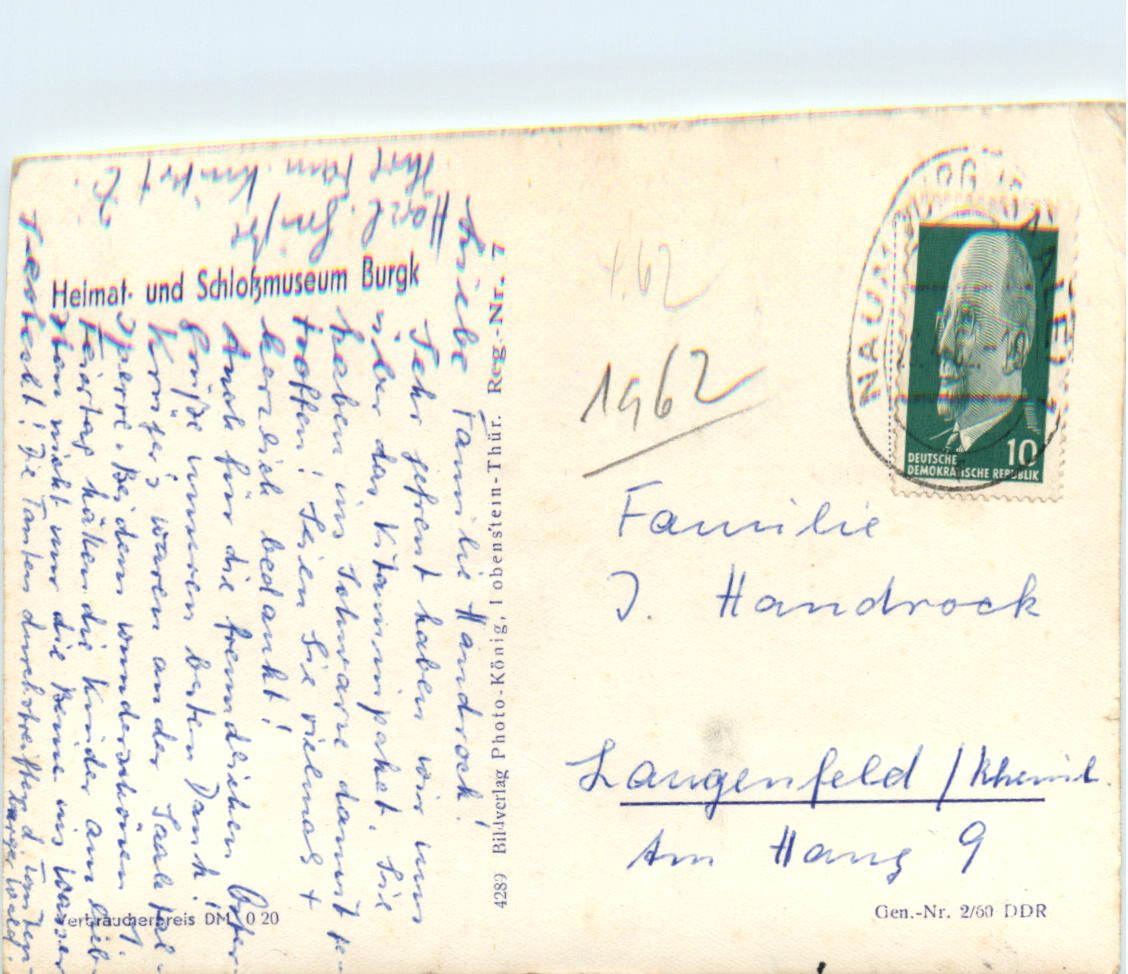 Liebe Familie Handrock!
Sehr gefreut haben wir uns
über das Vitaminpaket. Sie
haben ins Schwarze damit ge-
troffen! Seien Sie vielmals +
herzlich bedankt!
Auch für die freundlichen Oster-
grüße unseren besten Dank!
waren an der Saaletal-
sperre. Bei dem wunderschönen
Feiertag hätten die Kinder am lieb-
sten nicht nur die Beine ins Wasser
Die Tanten durchstreiften d
Herzl. Grüße
Ihre Fam.
Heimat- und Schloßmuseum Burgk
Verbraucherpreis DM 0 20
4289 Bildverlag Photo-König, Lobenstein-Thür. Reg.-Nr. 7
4.62
1962
NAUMBURG (SAALE)
10
DEUTSCHE
DEMOKRATISCHE REPUBLIK
Familie
J. Handrock
Langenfeld / Rheinl.
Am Hang 9
Gen.-Nr. 2/60 DDR